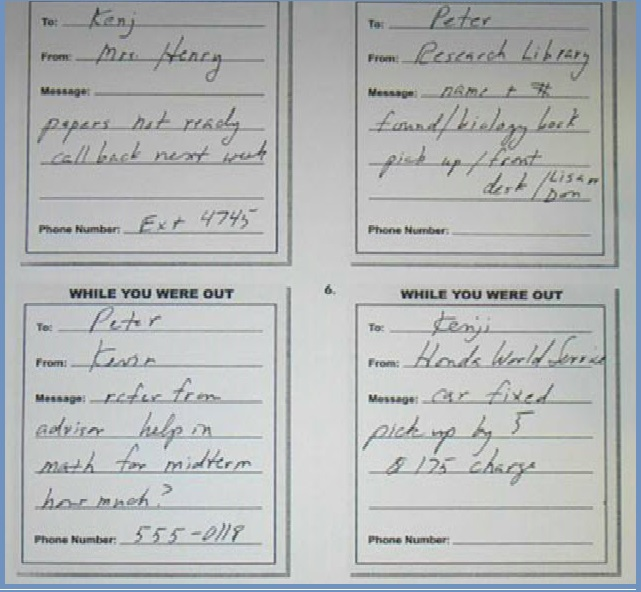 To: Kenj
From: Mrs. Henry
Message:
papers not ready
call back next week
Phone Number: Ext 4745
To: Peter
From: Research Library
Message: name + #
found/biology book
pick up / front
desk / Lisa or
Don
Phone Number:
WHILE YOU WERE OUT
To: Peter
From: Kevin
Message: refer from
advisor help in
math for midterm
how much?
Phone Number: 555-0118
6.
WHILE YOU WERE OUT
To: Kenji
From: Honda World Service
Message: car fixed
pick up by 5
$ 175 charge
Phone Number: